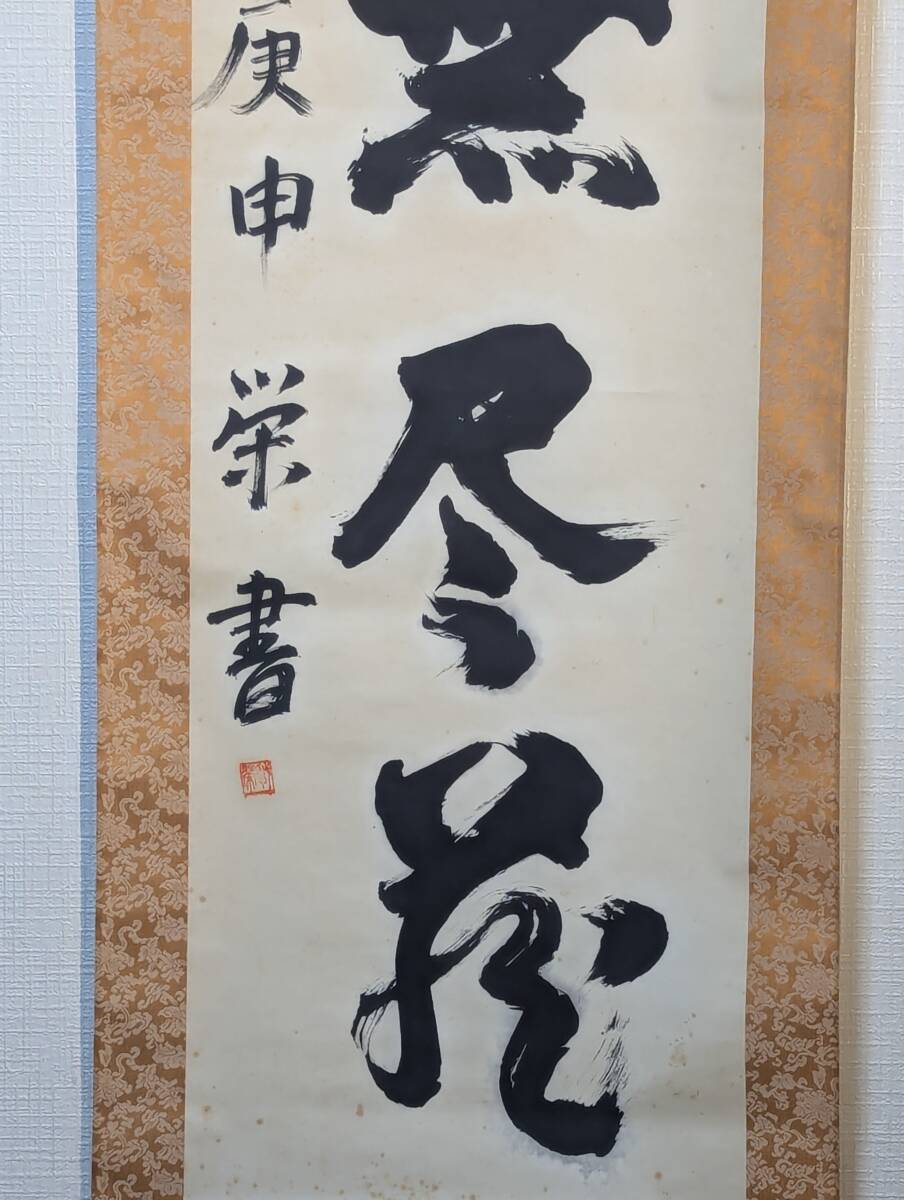 無尽蔵
庚申 栄書